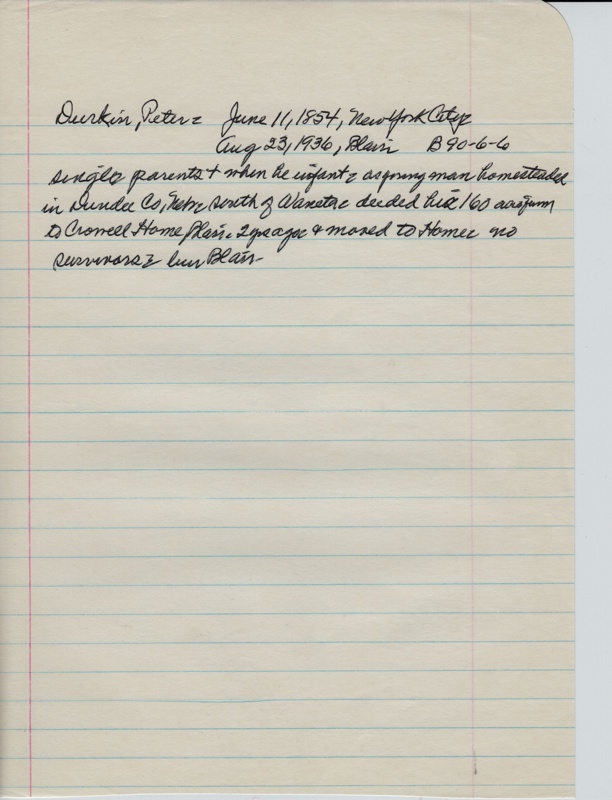 Durkin, Peter= June 11, 1854, New York City=
Aug 23, 1936, Blair B90-6-6
single= parents + when he infant= as young man homesteaded
in Dundee Co, Nebr= south of Wauneta= deeded his 160 a farm
to Crowell Home, Blair= 2 yrs ago & moved to Home= no
survivors= bur Blair-